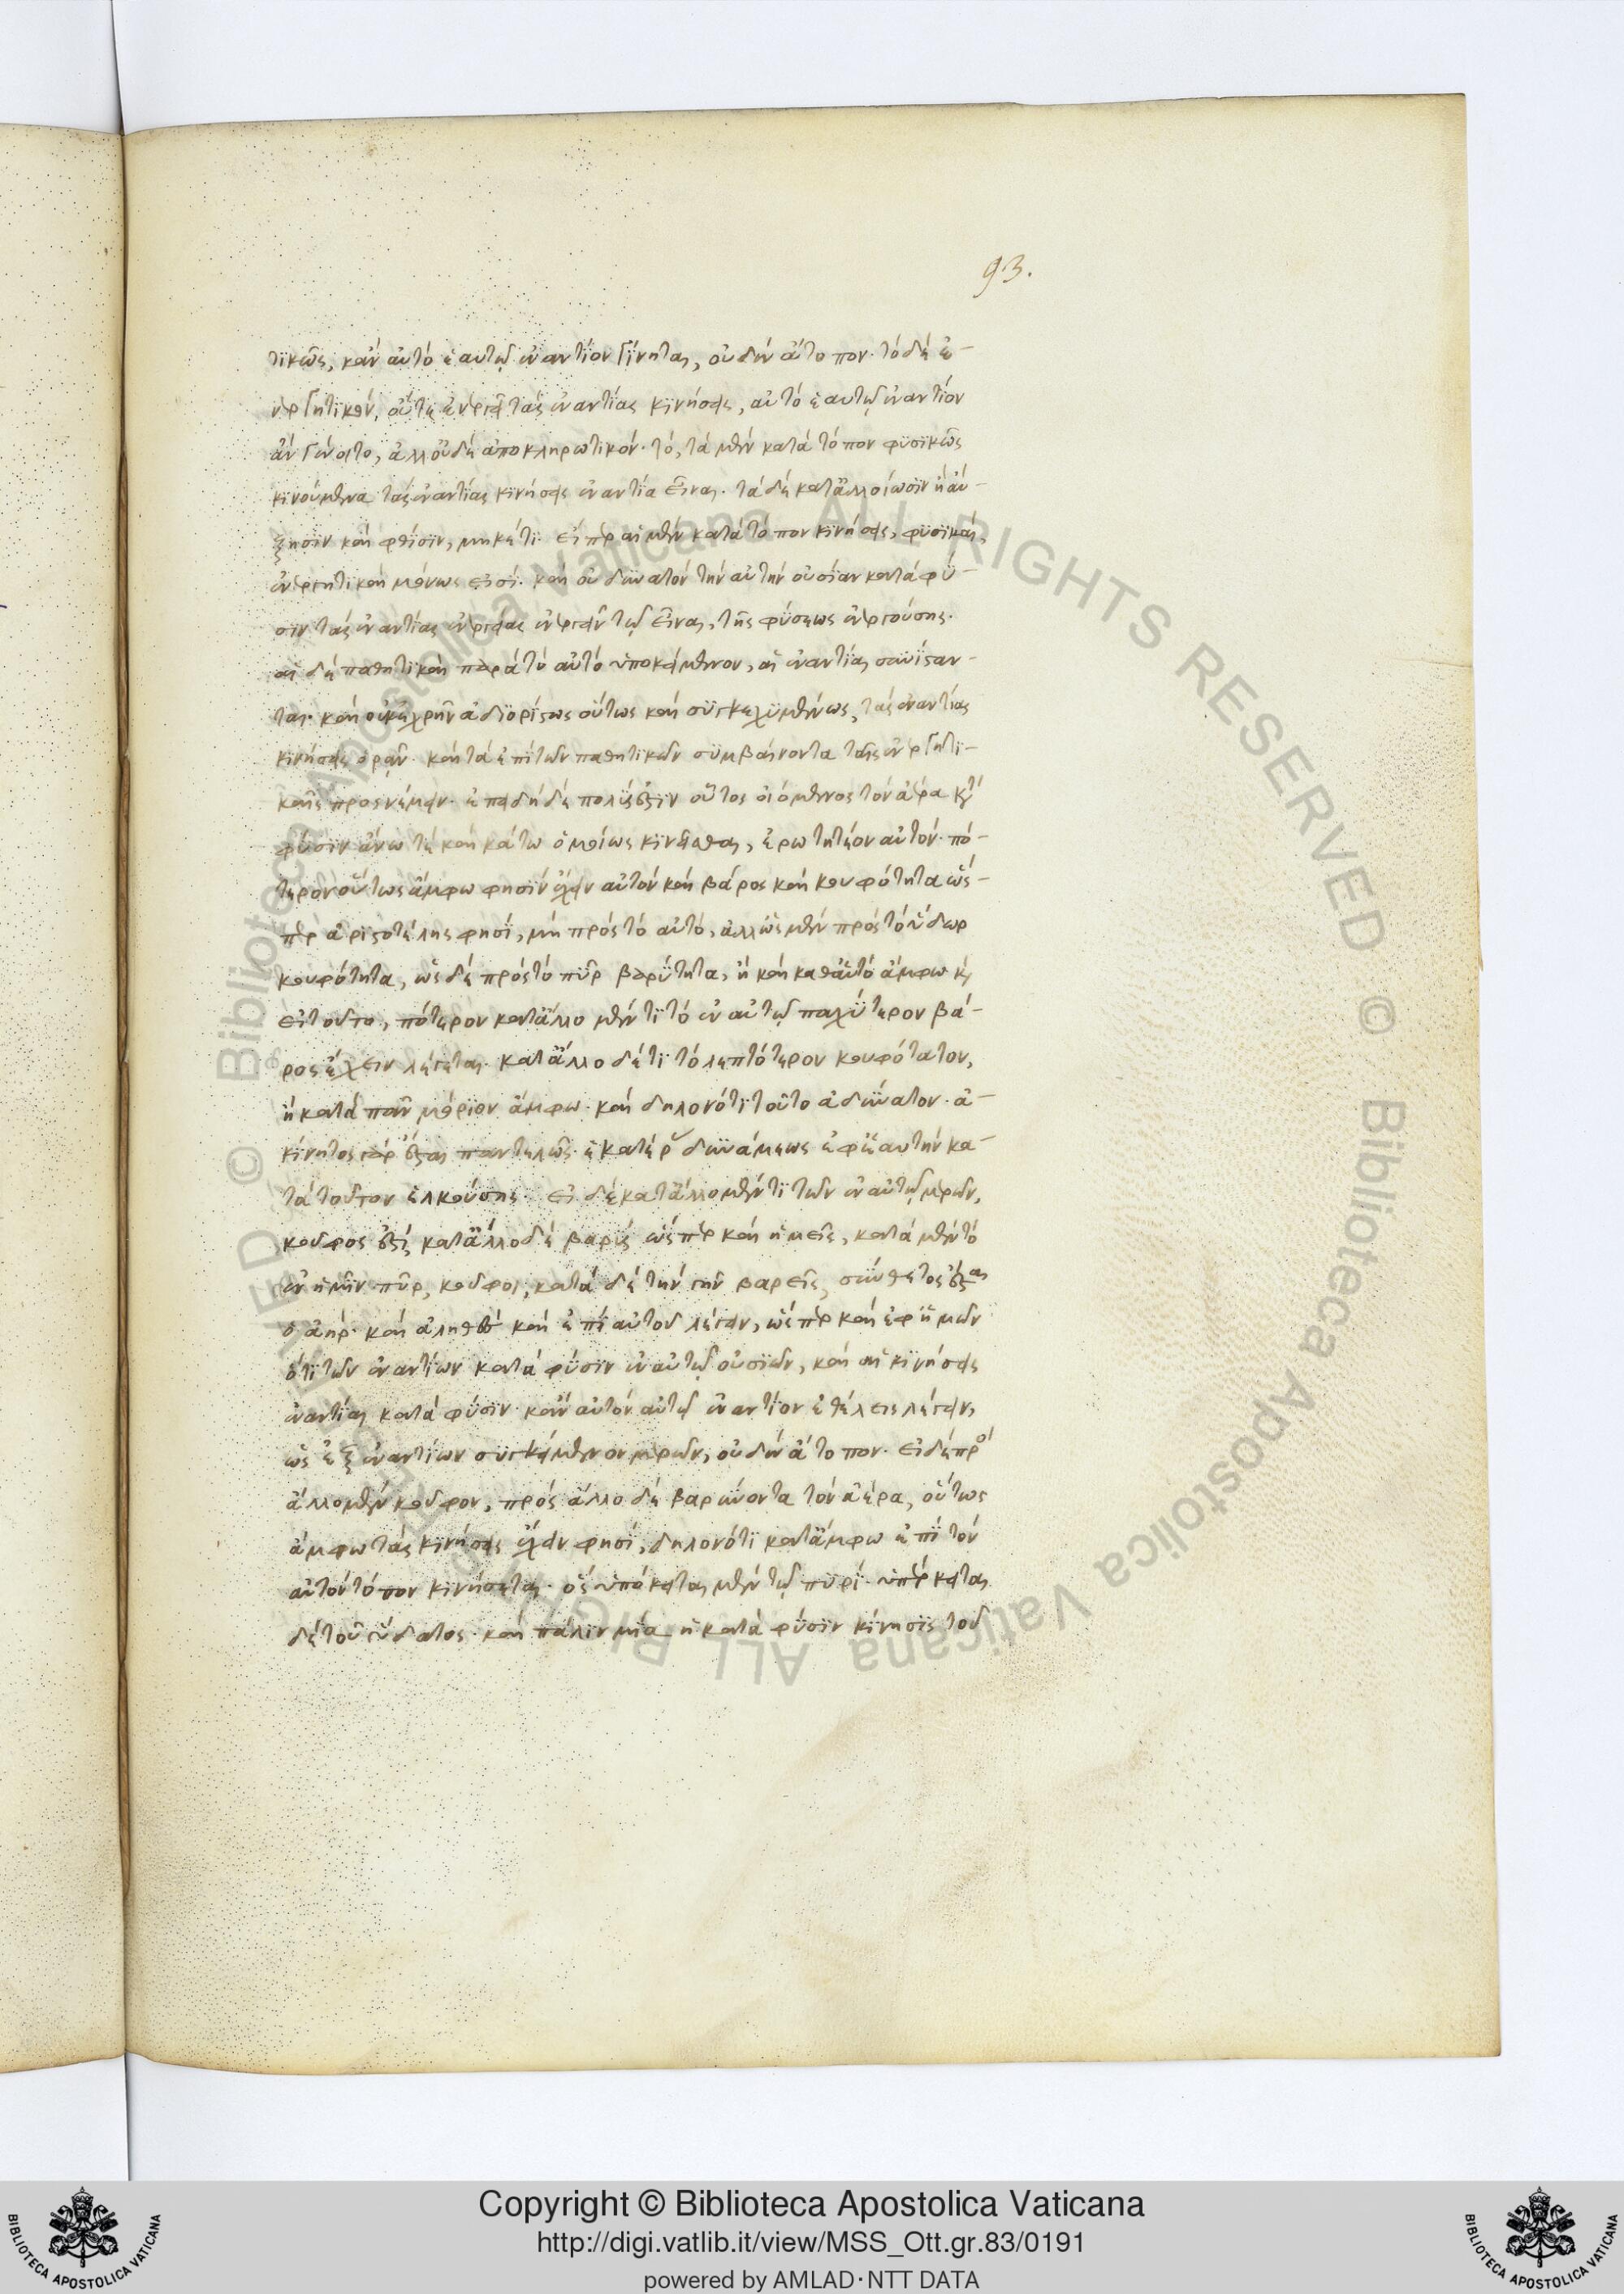 93.
τικῶς, κἂν αὐτὸ ἑαυτῷ ἐναντίον γίνηται, οὐδὲν ἄτοπον· τὸ δὲ ἐ-
νεργητικὸν, οὔτε ἐνεργεῖ τὰς ἐναντίας κινήσεις, αὐτὸ ἑαυτῷ ἐναντίον
ἂν γένοιτο, ἀλλ' οὐδὲ ἀποκληρωτικόν· τὸ, τὰ μὲν κατὰ τόπον φυσικῶς
κινούμενα τὰς ἐναντίας κινήσεις ἐναντία εἶναι· τὰ δὲ κατ' ἀλλοίωσιν ἢ αὔ-
ξησιν καὶ φθίσιν, μηκέτι· εἴπερ αἱ μὲν κατὰ τόπον κινήσεις, φυσικαὶ,
ἐνεργητικαὶ μόνως εἰσί· καὶ οὐ δυνατὸν τὴν αὐτὴν οὐσίαν κατὰ φύ-
σιν τὰς ἐναντίας ἐνεργείας ἐνεργεῖν τῷ εἶναι, τῆς φύσεως ἐνεργούσης·
αἱ δὲ παθητικαὶ παρὰ τὸ αὐτὸ ὑποκείμενον, αἱ ἐναντίαι συνίσταν-
ται· καὶ οὐκ ἐχρῆν ἀδιορίστως οὕτως καὶ συγκεχυμένως, τὰς ἐναντίας
κινήσεις ὁρᾷν· καὶ τὰ ἐπὶ τῶν παθητικῶν συμβαίνοντα ταῖς ἐνεργητι-
καῖς προσνέμειν· ἐπειδὴ δὲ πολύς ἐστιν οὗτος οἰόμενος τὸν ἀέρα κατὰ
φύσιν ἄνω τε καὶ κάτω ὁμοίως κινεῖσθαι, ἐρωτητέον αὐτόν· πό-
τερον οὕτως ἄμφω φησὶν ἔχειν αὐτὸν καὶ βάρος καὶ κουφότητα ὥσ-
περ ἀριστοτέλης φησί, μὴ πρὸς τὸ αὐτὸ, ἀλλ' ὡς μὲν πρὸς τὸ ὕδωρ
κουφότητα, ὡς δὲ πρὸς τὸ πῦρ βαρύτητα, ἢ καὶ καθ' αὑτὸ ἄμφω καὶ
εἰ τοῦτο, πότερον κατ' ἄλλο μέν τι τὸ ἐν αὐτῷ παχύτερον βά-
ρος ἔχειν λέγεται· κατ' ἄλλο δέ τι τὸ λεπτότερον κουφότατον,
ἢ κατὰ πᾶν μόριον ἄμφω· καὶ δηλονότι τοῦτο ἀδύνατον· ἀ-
κίνητος γὰρ ἔσται παντελῶς· ἑκατέρου δυνάμεως ἐφ' ἑαυτὴν κα-
τὰ τοῦτον ἑλκούσης· εἰ δὲ κατ' ἄλλο μέν τι τῶν ἐν αὐτῷ μερῶν,
κοῦφος ἐστὶ, κατ' ἄλλο δὲ βαρὺς ὥσπερ καὶ ἡμεῖς, κατὰ μὲν τὸ
ἐν ἡμῖν πῦρ, κοῦφοι, κατὰ δὲ τὴν γῆν βαρεῖς, σύνθετος ἔσται
ὁ ἀὴρ· καὶ ἀληθὲς καὶ ἐπὶ αὐτοῦ λέγειν, ὥσπερ καὶ ἐφ' ἡμῶν
ὅτι τῶν ἐναντίων κατὰ φύσιν ἐν αὐτῷ οὐσιῶν, καὶ αἱ κινήσεις
ἐναντίαι κατὰ φύσιν· κἂν αὐτὸν αὑτῷ ἐναντίον ἐθέλεις λέγειν,
ὡς ἐξ ἐναντίων συγκείμενον μερῶν, οὐδὲν ἄτοπον· εἰ δὲ πρὸς
ἄλλο μὲν κοῦφον, πρὸς ἄλλο δὲ βαρύνοντα τὸν ἀέρα, οὕτως
ἄμφω τὰς κινήσεις ἔχειν φησί, δηλονότι κατ' ἄμφω ἐπὶ τὸν
αὐτὸν τόπον κινήσεται· ὃς ὑπόκειται μὲν τῷ πυρί· ὑπέρκειται
δὲ τοῦ ὕδατος· καὶ πάλιν μία ἡ κατὰ φύσιν κίνησις τοῦ
Copyright © Biblioteca Apostolica Vaticana
http://digi.vatlib.it/view/MSS_Ott.gr.83/0191
powered by AMLAD·NTT DATA